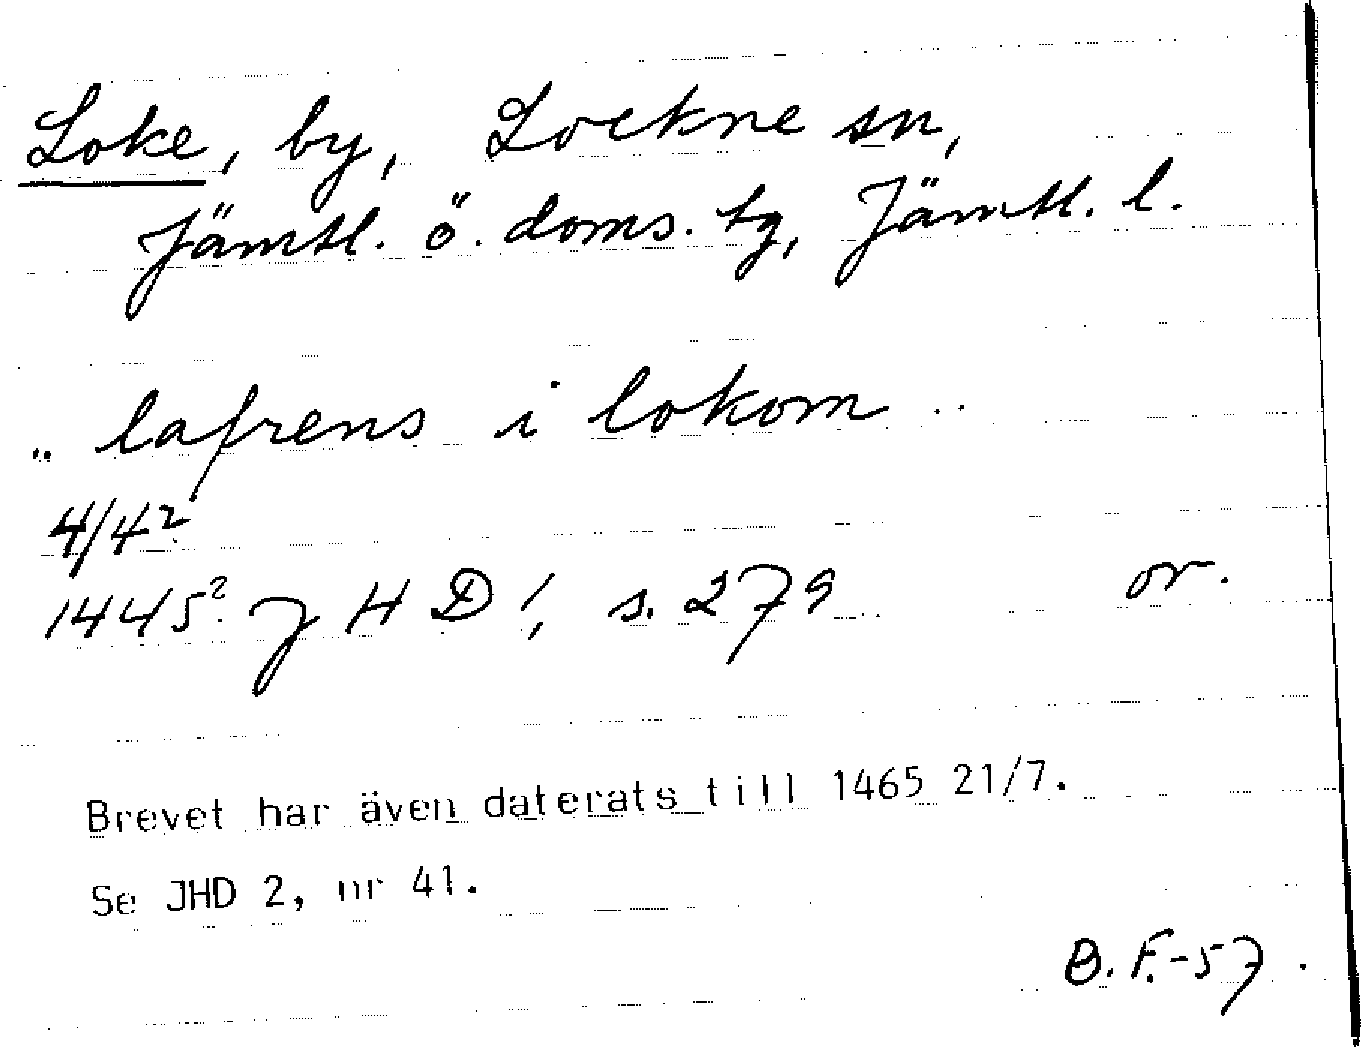 Loke, by, Lockne sn,
Jämtl. ö. doms. tg, Jämtl. l.
.. lafrens i lokom ..
4/4?
1445? JHD 1, s. 279 or.
Brevet har även daterats till 1465 21/7.
Se JHD 2, nr 41.
B. F.-57.